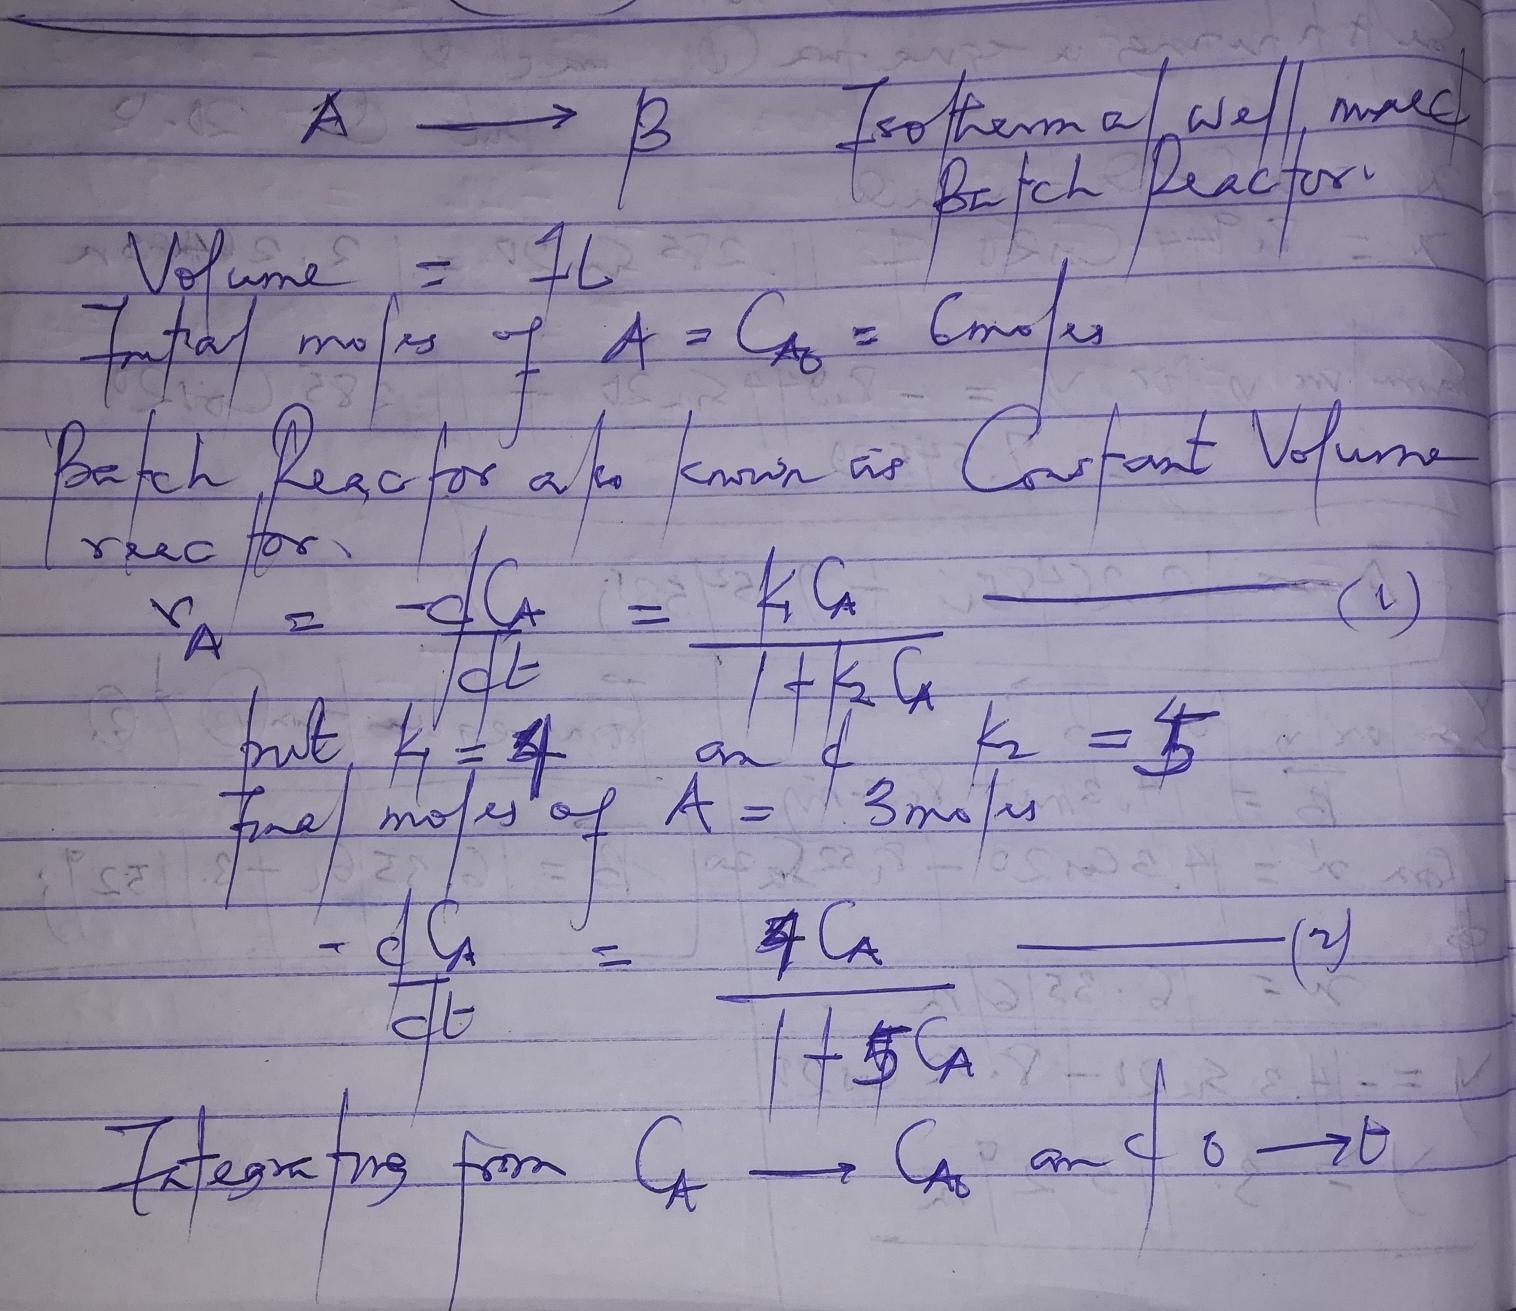 A → B Isothermal well mixed
Batch Reactor.
Volume = 1L
Initial moles of A = C_A0 = 6moles
Batch Reactor also known as Constant Volume
reactor.
r_A = -dC_A/dt = k_1 C_A / 1 + k_2 C_A (1)
but k_1 = 4 and k_2 = 5
Final moles of A = 3moles
-dC_A/dt = 4C_A / 1 + 5C_A (2)
Integrating from C_A → C_A0 and 0 → t